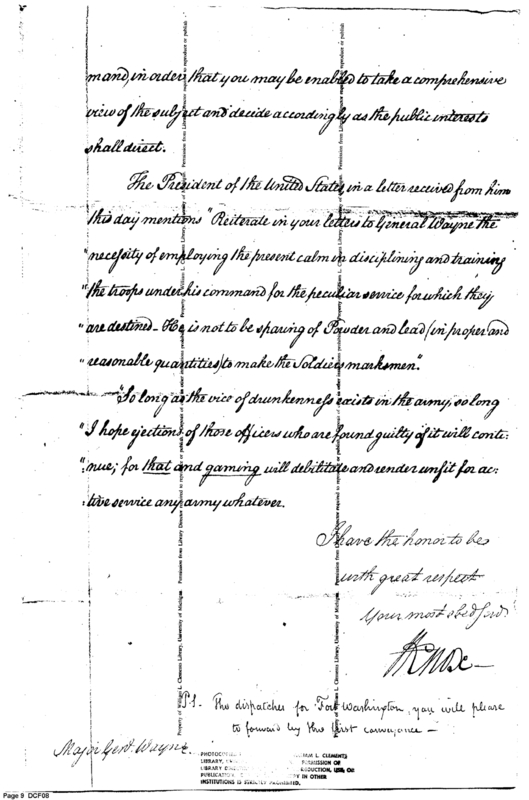 mand, in order, that you may be enabled to take a comprehensive
view of the subject and decide accordingly as the public interests
shall direct.
The President of the United States, in a letter received from him
this day mentions "Reiterate in your letters to General Wayne the
"necessity of employing the present calm in disciplining and training
"the troops under his command for the peculiar service for which they
"are destined – He is not to be sparing of Powder and lead (in proper and
"reasonable quantities) to make the Soldiers marksmen".
"So long as the vice of drunkenness exists in the army, so long
"I hope ejections of those officers who are found guilty of it will conti-
"nue; for that and gaming will debilitate and render unfit for ac-
tive service any army whatever.
I have the honor to be
with great respect
Your most obed
HKnox
P.S. The dispatches for Fort Washington, you will please
to forward by the first conveyance –
Major Genl. Wayne.
Property of William L. Clements Library, University of Michigan. Permission from Library Director required to reproduce or publish
LIAM L. CLEMENTS
LIBRARY,
PERMISSION OF
LIBRARY
DUCTION, USE, OR
PUBLICATION
IN OTHER
INSTITUTIONS IS STRICTLY PROHIBITED.
Page 9 DCF08